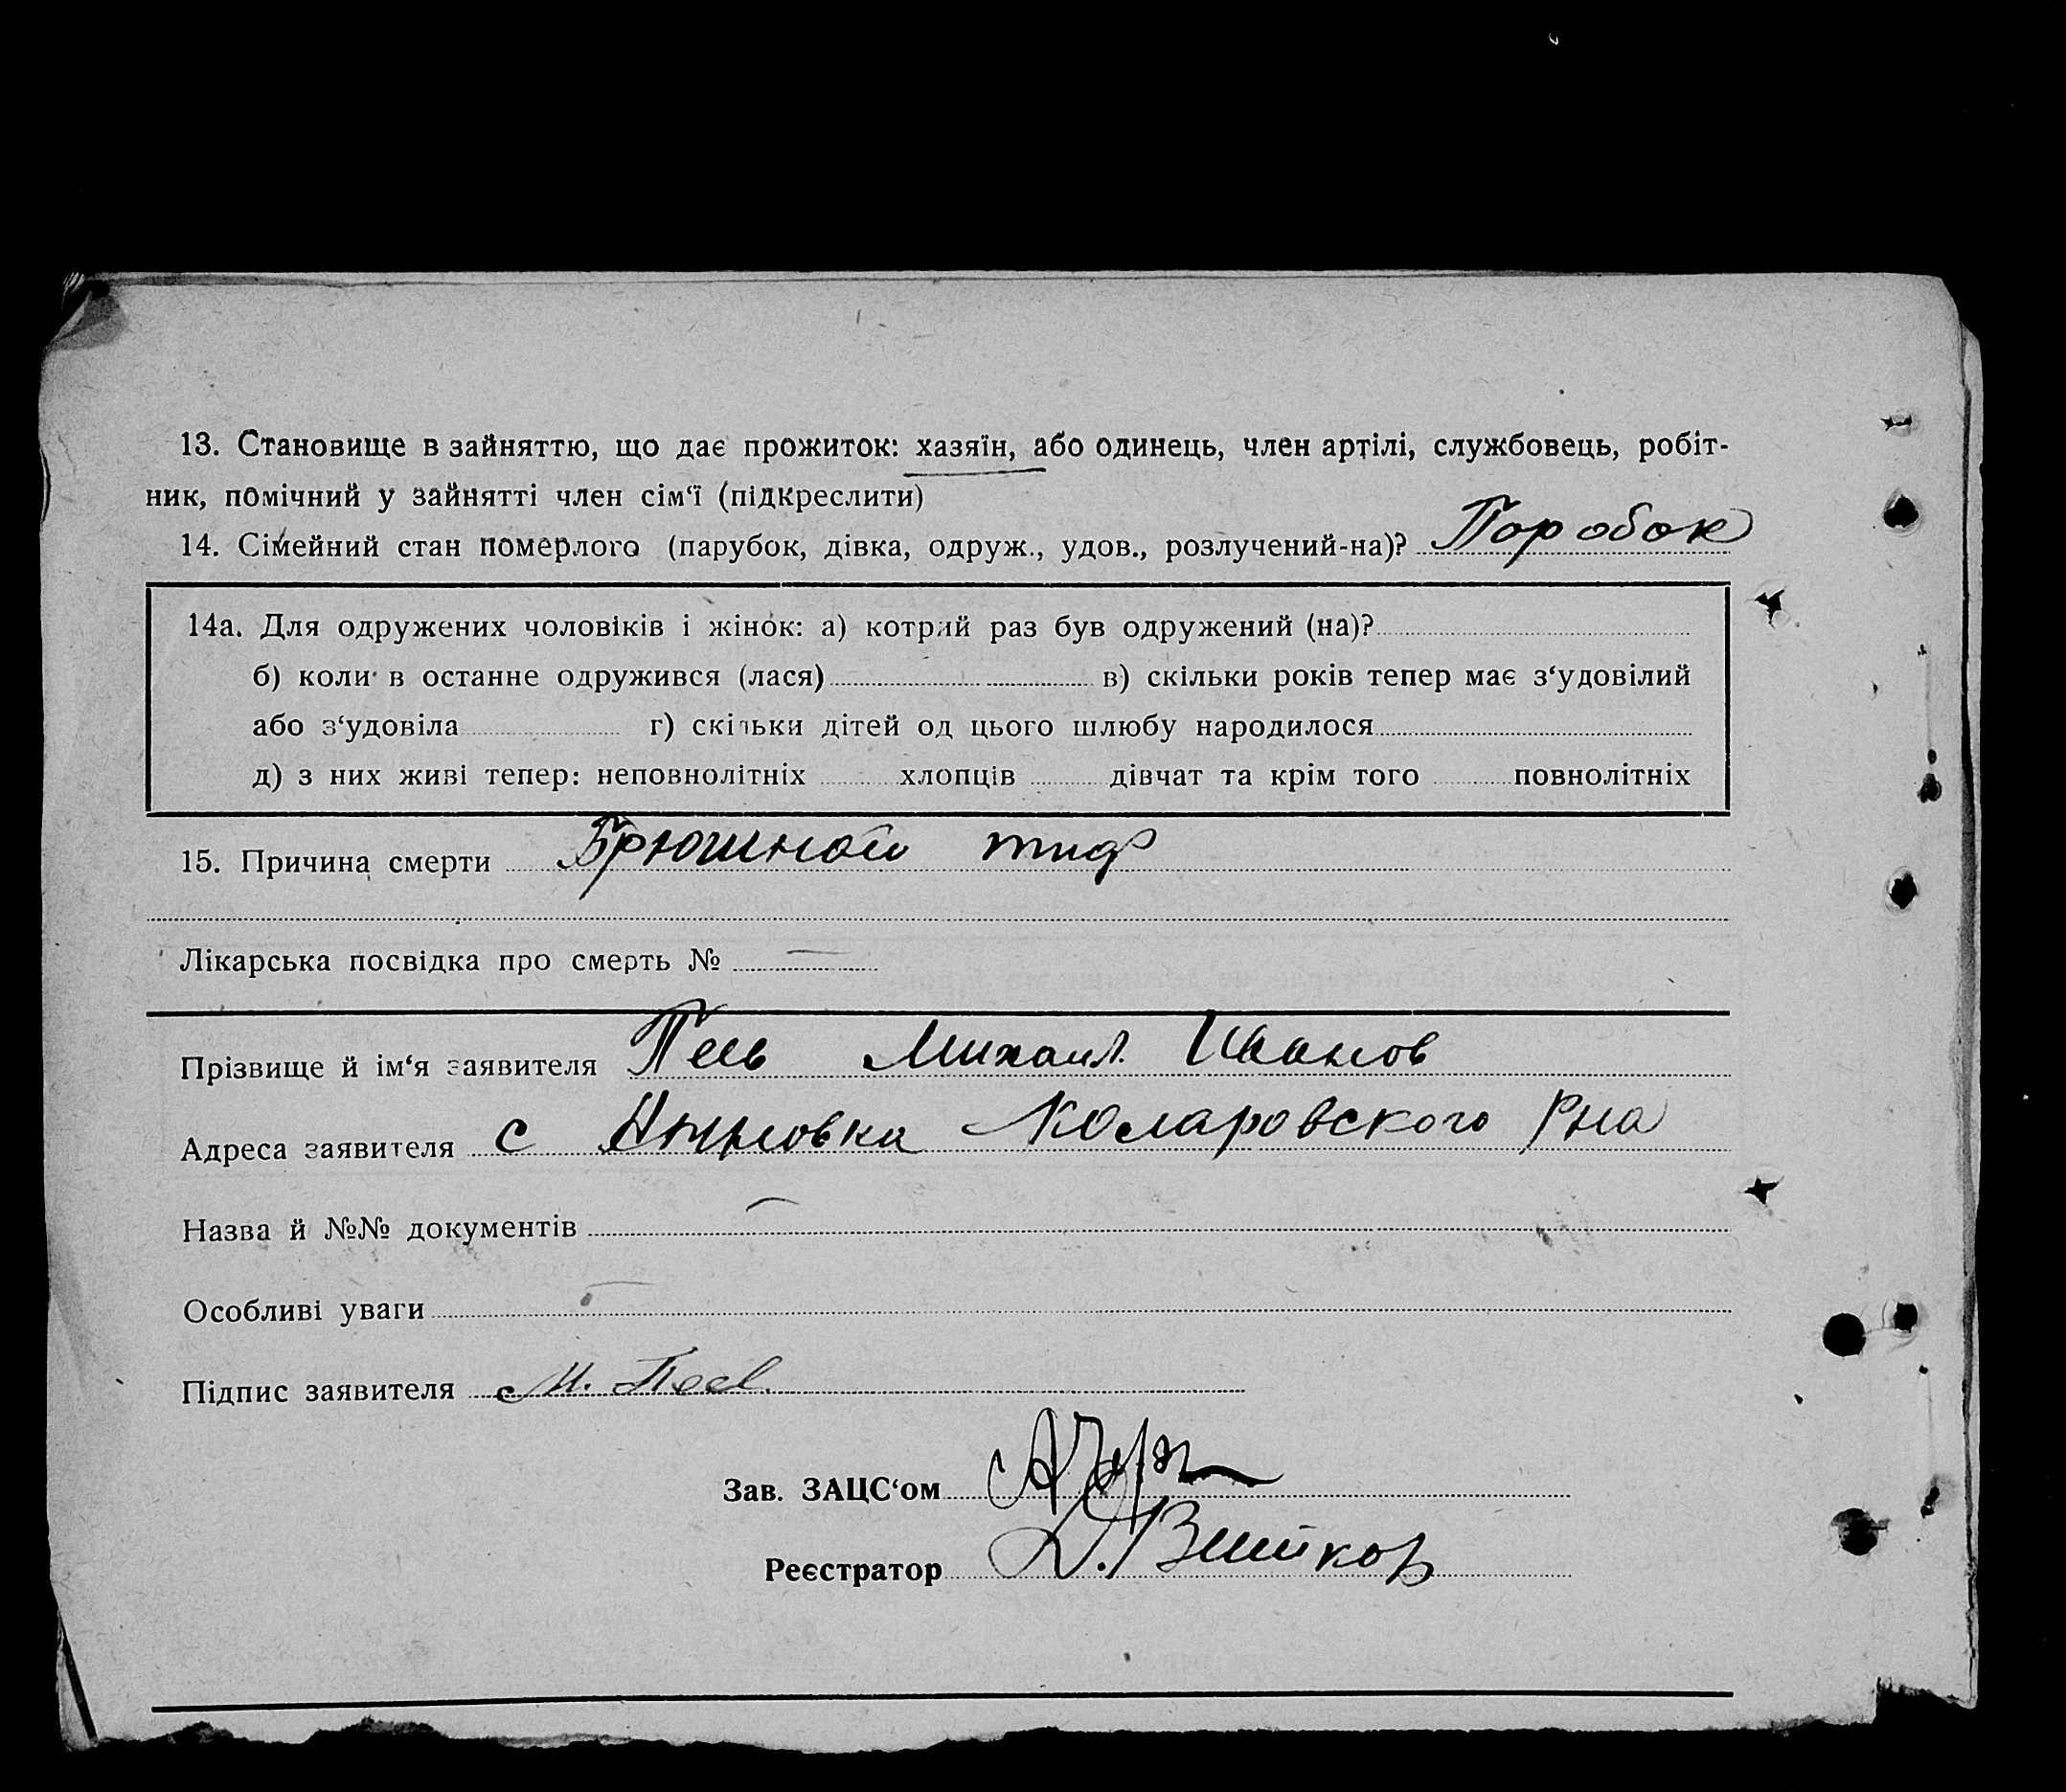 13. Становище в зайняттю, що дає прожиток: хазяїн, або одинець, член артілі, службовець, робіт-
ник, помічний у зайнятті член сім‘ї (підкреслити)
14. Сімейний стан померлого (парубок, дівка, одруж., удов., розлучений-на)? Поробок
14а. Для одружених чоловіків і жінок: а) котрий раз був одружений (на)?
б) коли в останне одружився (лася) в) скільки років тепер має з‘удовілий
або з‘удовіла г) скільки дітей од цього шлюбу народилося
д) з них живі тепер: неповнолітніх хлопців дівчат та крім того повнолітніх
15. Причина смерти Брюшной тиф
Лікарська посвідка про смерть № —
Прізвище й ім‘я заявителя Михаил Иванов
Адреса заявителя с Коларовского Рна
Назва й №№ документів —
Особливі уваги —
Підпис заявителя М.
Зав. ЗАЦС‘ом
Реєстратор Д.